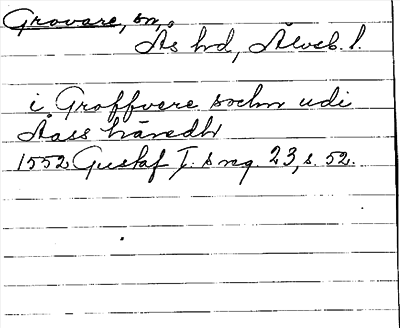 Grovare, sn,
Ås hd, Älvsb. l.
i Groffvere sochn udi
Aass häredh
1552 Gustaf I. s reg. 23, s. 52.